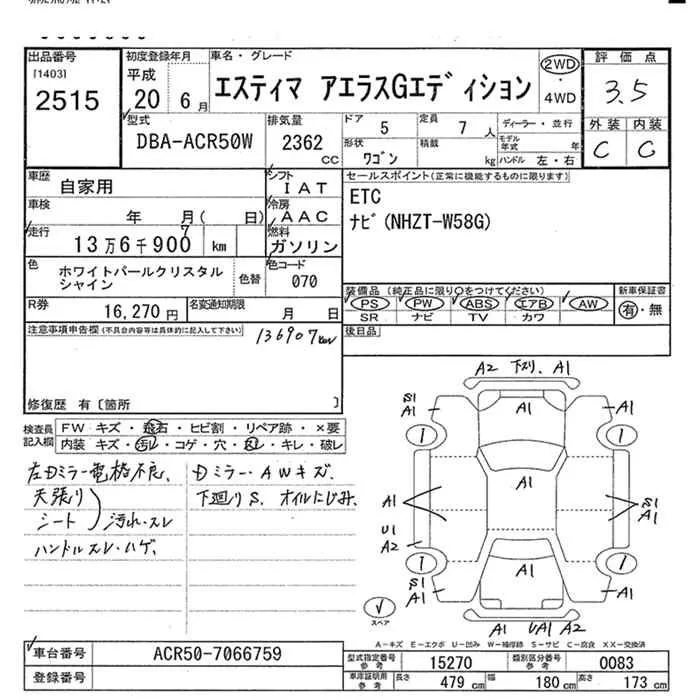 出品番号
[1403]
2515
初度登録年月
平成
20 6月
車名・グレード
エスティマ アエラスGエディション
2WD
・
4WD
評価点
3.5
外装 内装
C C
型式
DBA-ACR50W
排気量
2362
CC
ドア 5
定員 7 人
ディーラー・並行
形状 ワゴン
積載 kg
モデル年式 年
ハンドル 左・右
車歴 自家用
シフト IAT
セールスポイント(正常に機能するものに限ります)
ETC
ナビ(NHZT-W58G)
車検 年 月( 日)
冷房 AAC
走行 13万6千900 7 km
燃料 ガソリン
色 ホワイトパールクリスタルシャイン
色替
色コード 070
装備品(純正品に限り○をつけてください)
PS PW ABS エアB AW
SR ナビ TV カワ
新車保証書
有・無
R券 16,270円
名変通知期限 月 日
後日品
注意事項申告欄(不具合内容等は具体的に記入して下さい)
136907km
修復歴 有〔箇所 〕
検査員記入欄
FW キズ・飛石・ヒビ割・リペア跡・×要
内装 キズ・汚レ・コゲ・穴・スレ・キレ・破レ
左Dミラー電格不良、
天張り
シート
汚れ・スレ
ハンドルスレ・ハゲ、
Dミラー・AWキズ、
下廻りS、オイルにじみ、
A2 下スリ、A1
S1
A1
A1
A1
A1
A1
S1
A1
U1
A2
A1
S1
A1
A1
スペア
A1 UA1 A2
A-キズ E-エクボ U-凹み W-補修跡 S-サビ C-腐食 XX-交換済
車台番号 ACR50-7066759
登録番号
型式指定番号参考 15270
類別区分番号参考 0083
車庫証明用参考
長さ 479 cm
幅 180 cm
高さ 173 cm